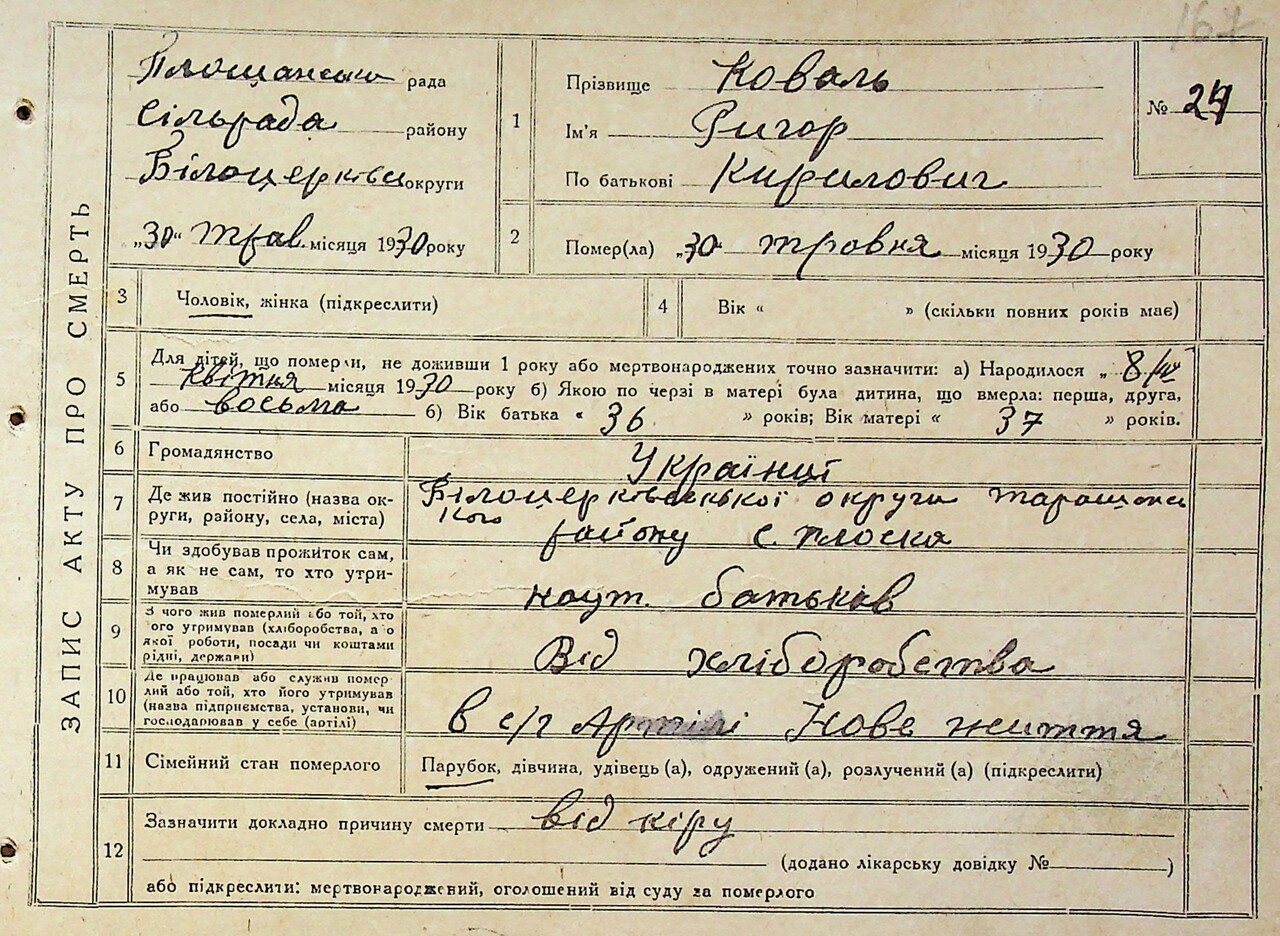 167
ЗАПИС АКТУ ПРО СМЕРТЬ
Площанська рада
Сільрада району
Білоцерківс округи
„30“ трав. місяця 1930 року
1 Прізвище Коваль
Ім'я Ригор
По батькові Кирилович
№ 24
2 Помер(ла) „30 тровня місяця 1930 року
3 Чоловік, жінка (підкреслити) 4 Вік « » (скільки повних років має)
5 Для дітей, що померли, не доживши 1 року або мертвонароджених точно зазначити: а) Народилося „ 8/IV
квітня місяця 1930 року б) Якою по черзі в матері була дитина, що вмерла: перша, друга,
або восьма б) Вік батька « 36 » років; Вік матері « 37 » років.
6 Громадянство Українці
7 Де жив постійно (назва ок-
руги, району, села, міста)
Білоцерківської округи таращанс
кого району с. плоска
8 Чи здобував прожиток сам,
а як не сам, то хто утри-
мував
батьків
9 З чого жив померлий або той, хто
ого утримував (хліборобства, а о
якої роботи, посади чи коштами
рідні, держави)
Від хліборобства
10 Де працював або служив помер
лий або той, хто його утримував
(назва підприємства, установи, чи
господарював у себе (артілі)
в с/г Артілі Нове життя
11 Сімейний стан померлого Парубок, дівчина, удівець (а), одружений (а), розлучений (а) (підкреслити)
12 Зазначити докладно причину смерти від кіру
(додано лікарську довідку № )
або підкреслити: мертвонароджений, оголошений від суду за померлого